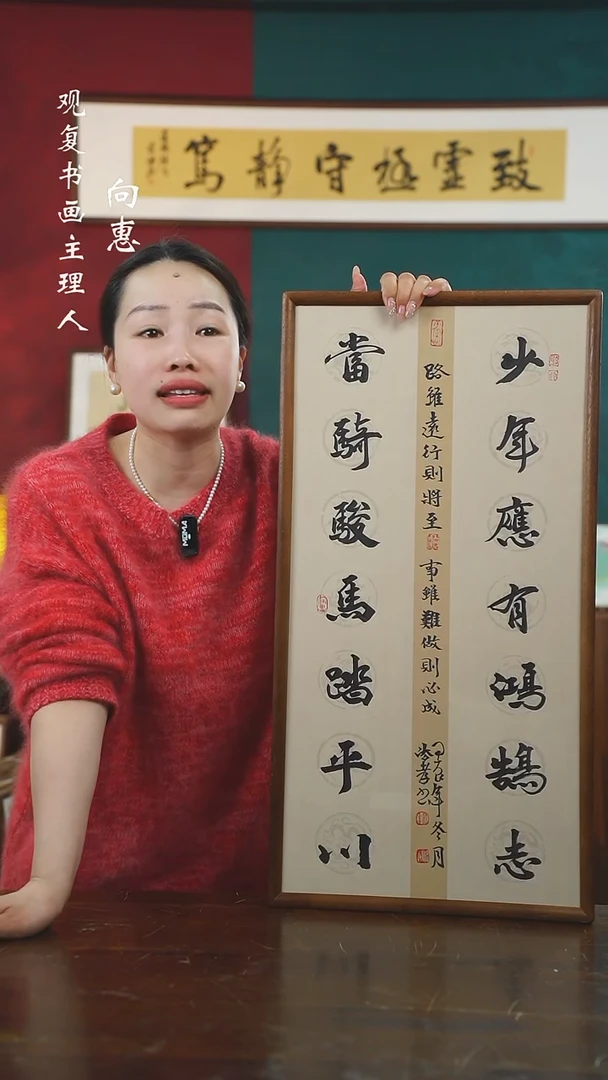 观复书画主理人
向惠
致虚極守静篤
少年應有鴻鵠志
路雖遠行則將至 事雖難做則必成
甲辰年冬月
當騎駿馬踏平川